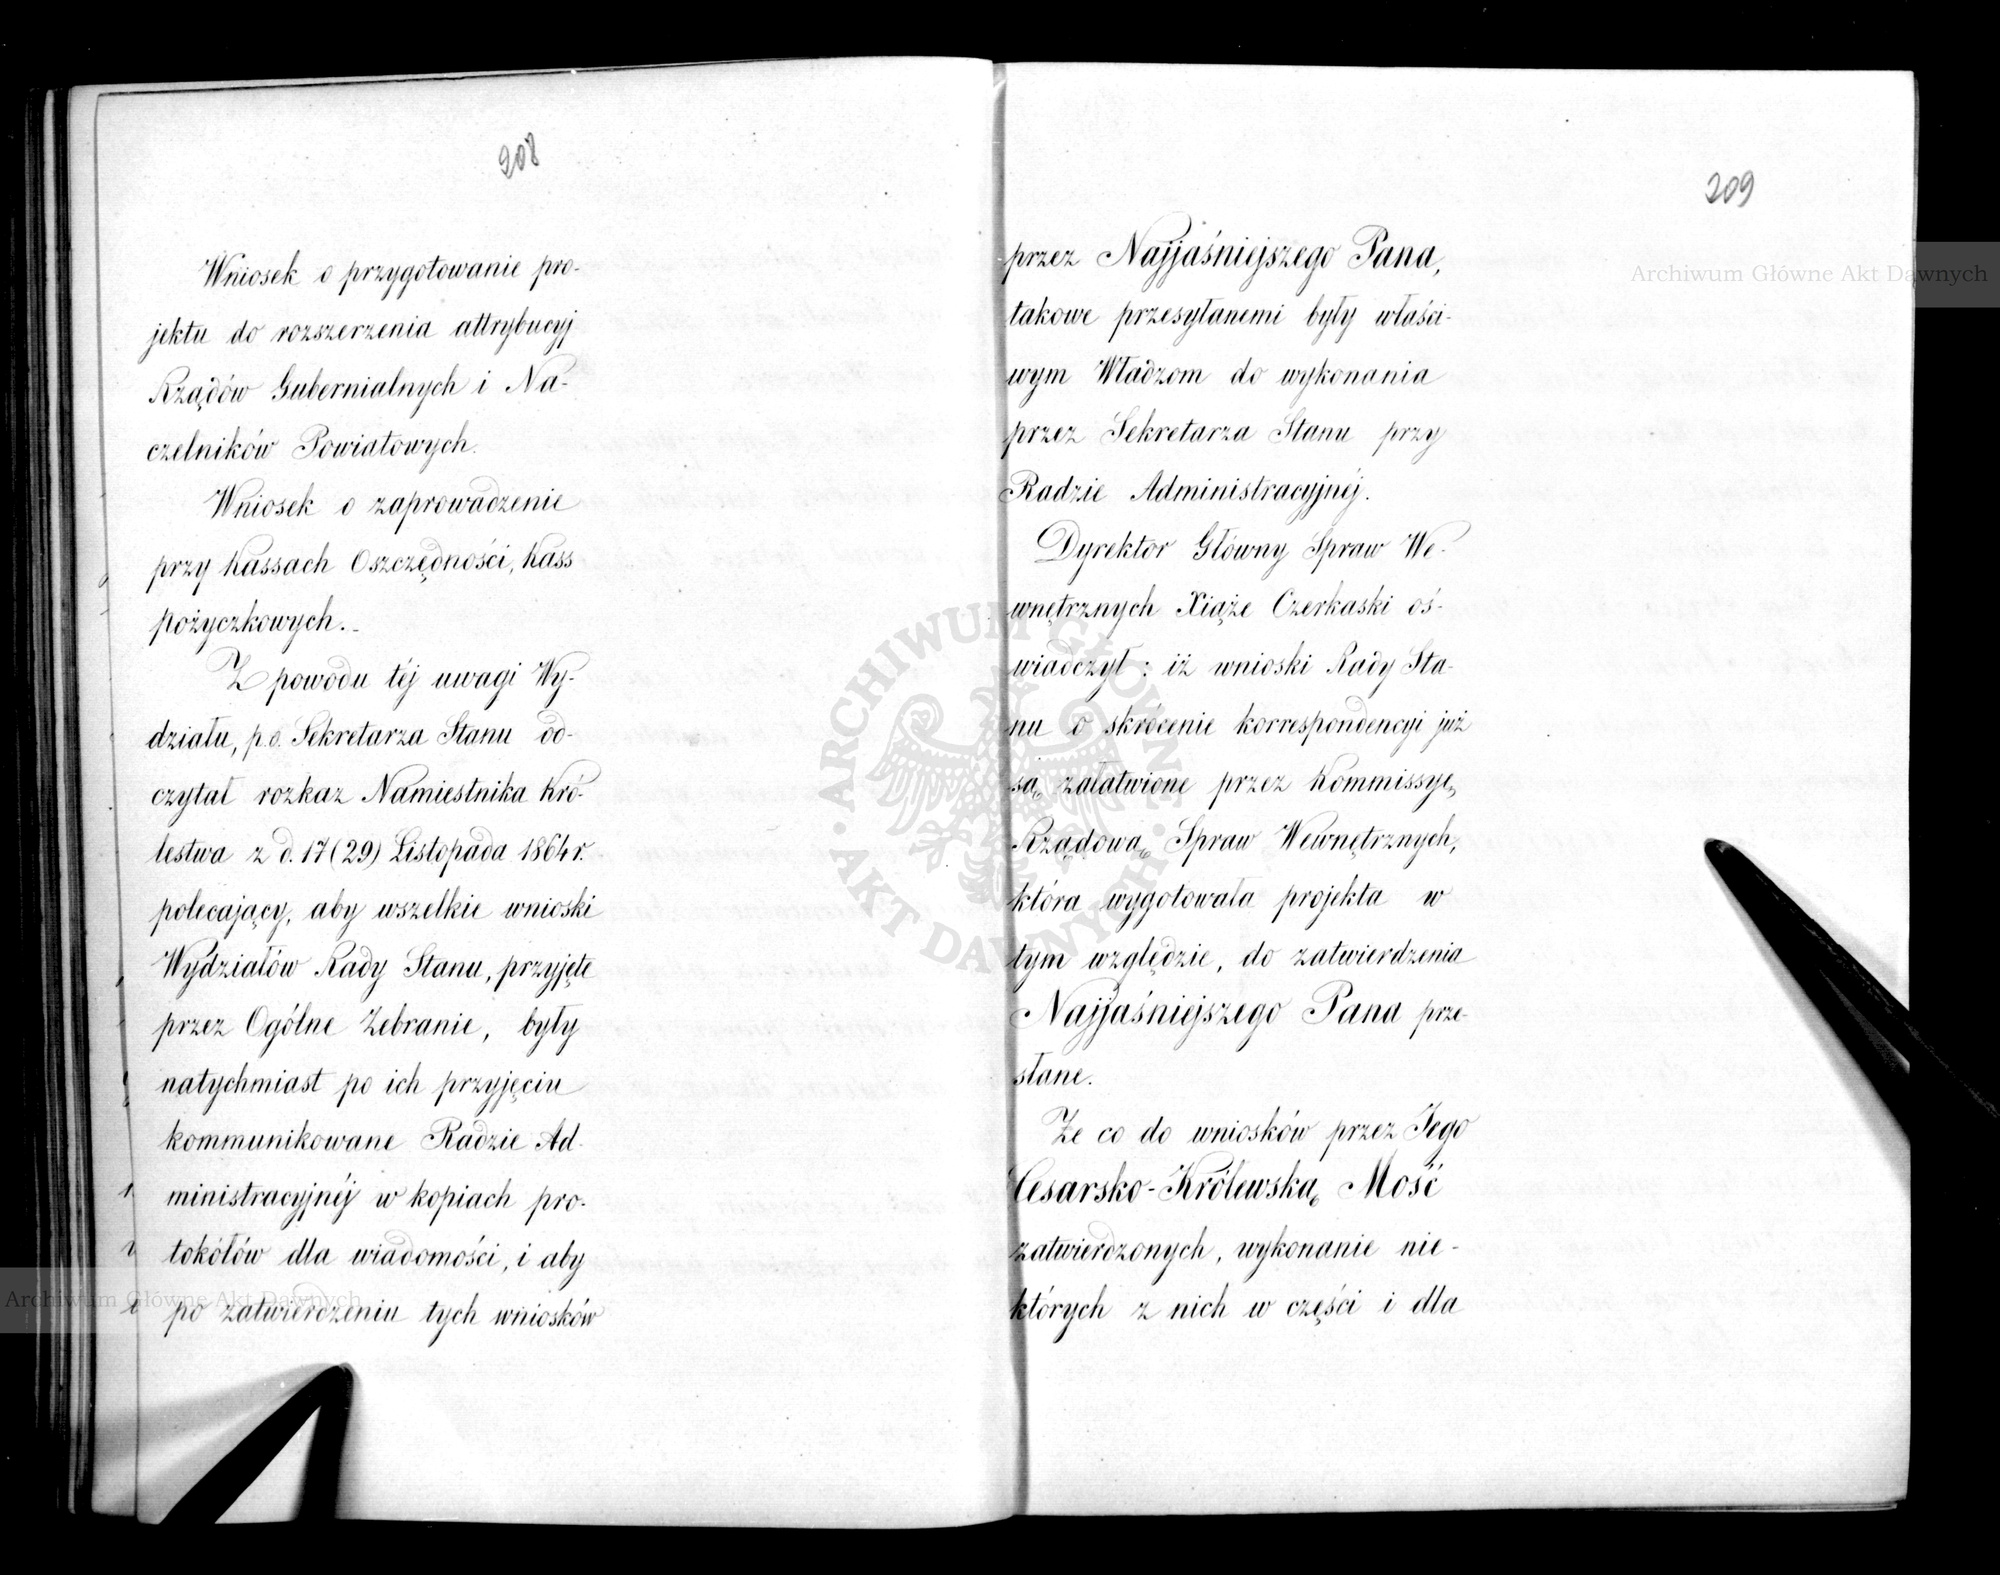 208
Wniosek o przygotowanie pro-
jektu do rozszerzenia attrybucyj
Rządów Gubernialnych i Na-
czelników Powiatowych.
Wniosek o zaprowadzenie
przy Kassach Oszczędności, Kass
pożyczkowych.
Z powodu téj uwagi Wy-
działu, p.o. Sekretarza Stanu od-
czytał rozkaz Namiestnika Kró-
lestwa z d. 17 (29) Listopada 1864 r.
polecający, aby wszelkie wnioski
Wydziałów Rady Stanu, przyjęte
przez Ogólne Zebranie, były
natychmiast po ich przyjęciu
kommunikowane Radzie Ad-
ministracyjnéj w kopiach pro-
tokółów dla wiadomości, i aby
po zatwierdzeniu tych wniosków
209
przez Najjaśniejszego Pana,
takowe przesyłanemi były właści-
wym Władzom do wykonania
przez Sekretarza Stanu przy
Radzie Administracyjnéj.
Dyrektor Główny Spraw We-
wnętrznych Xiąże Czerkaski oś-
wiadczył: iż wnioski Rady Sta-
nu o skrócenie korrespondencyi już
są załatwione przez Kommissyę
Rządową Spraw Wewnętrznych,
która wygotowała projekta w
tym względzie, do zatwierdzenia
Najjaśniejszego Pana prze-
słane.
Że co do wniosków przez Jego
Cesarsko-Królewską Mość
zatwierdzonych, wykonanie nie-
których z nich w części i dla
Archiwum Główne Akt Dawnych
Archiwum Główne Akt Dawnych
ARCHIWUM GŁÓWNE AKT DAWNYCH